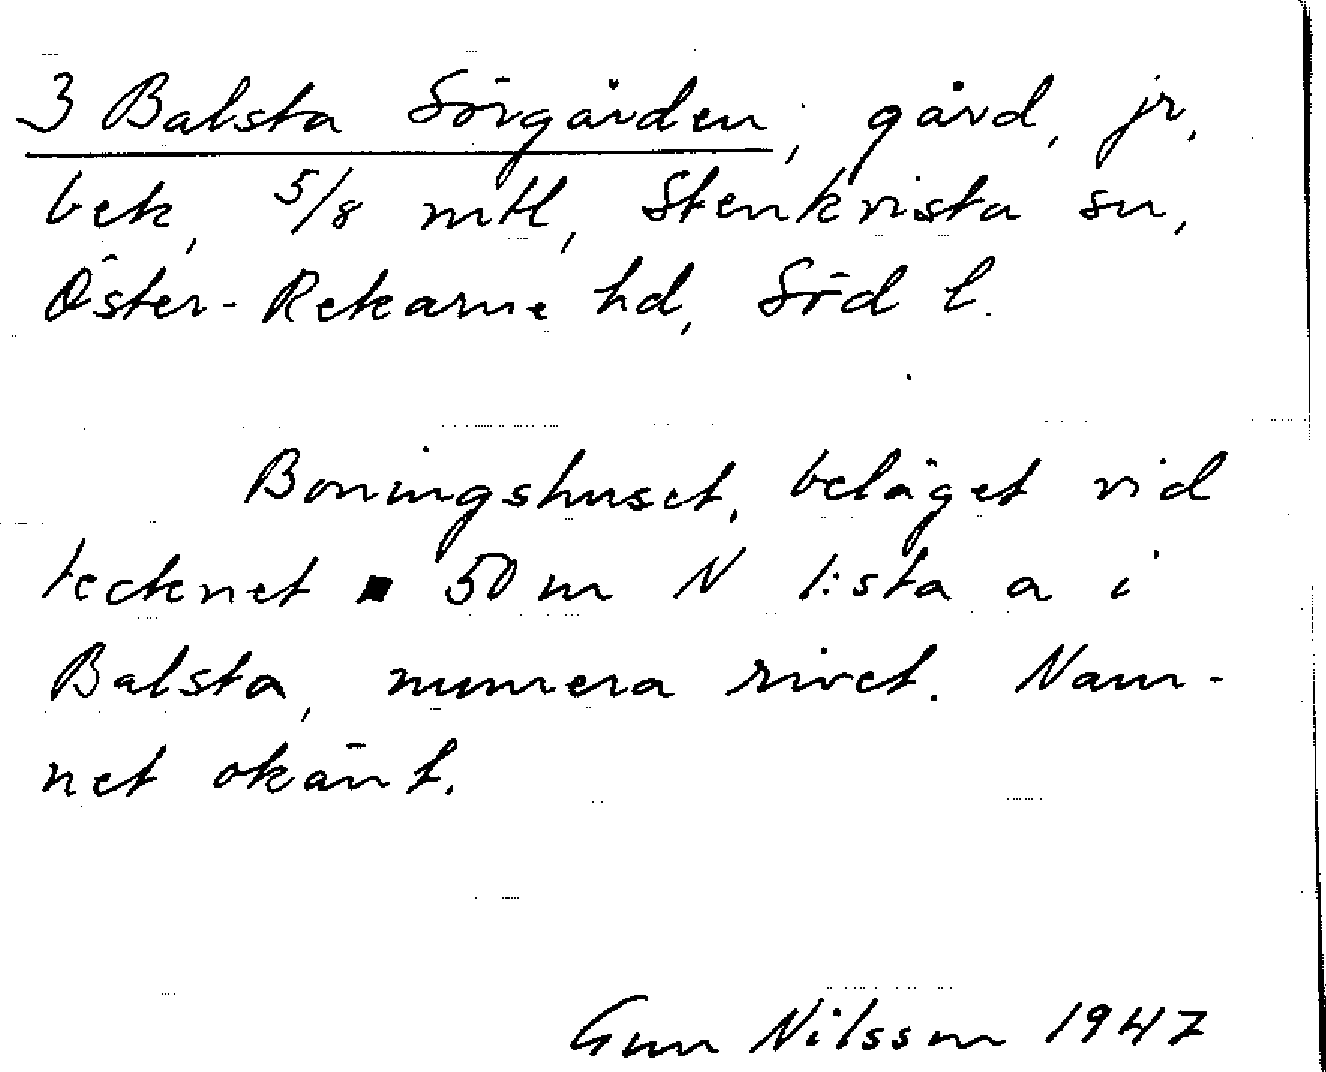 3 Balsta Sörgården, gård, jr,
bek, 5/8 mtl, Stenkvista sn,
Öster-Rekarne hd, Söd l.
Boningshuset, beläget vid
tecknet ▪ 50 m N 1:sta a i
Balsta, numera rivet. Nam-
net okänt.
Gun Nilsson 1947